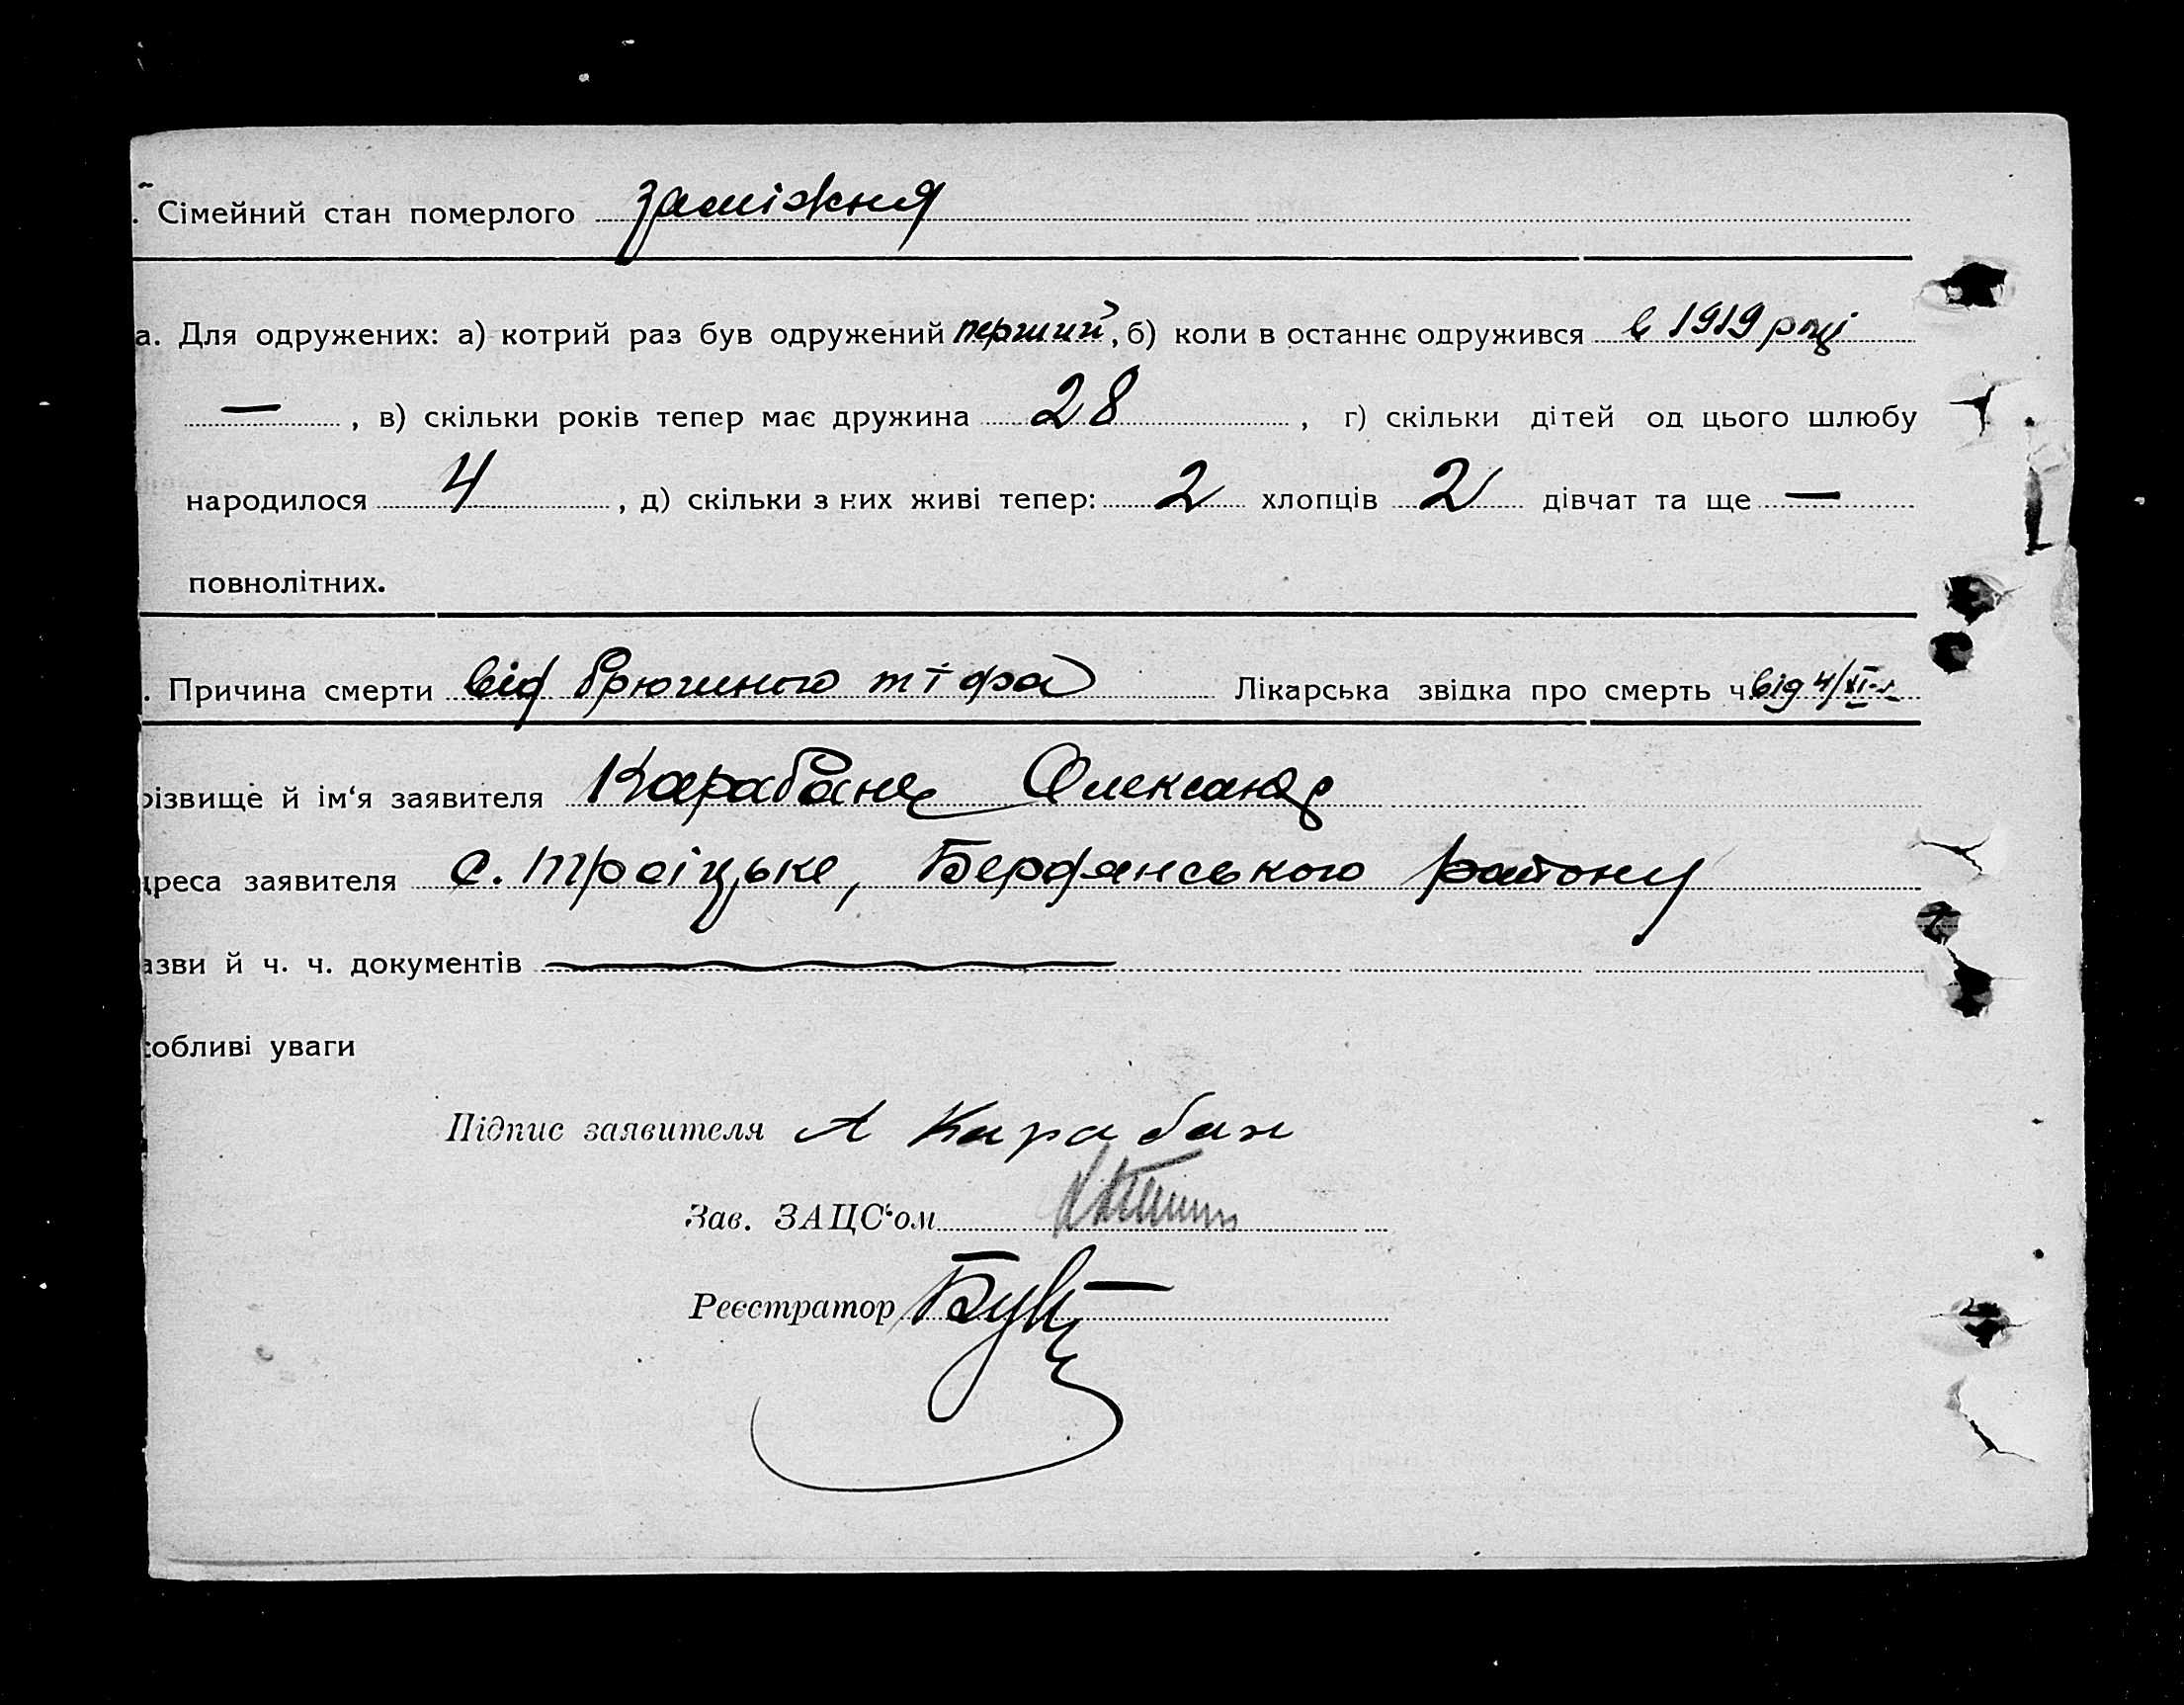 . Сімейний стан померлого заміжня
а. Для одружених: а) котрий раз був одружений перший, б) коли в останнє одружився в 1919 році
—, в) скільки років тепер має дружина 28, г) скільки дітей од цього шлюбу
народилося 4, д) скільки з них живі тепер: 2 хлопців 2 дівчат та ще —
повнолітних.
. Причина смерти від брюшного тіфа Лікарська звідка про смерть ч. від 4/XI-
різвище й ім‘я заявителя Карабанец Олександр
дреса заявителя с. Троїцьке, Бердянського району
азви й ч. ч. документів
собливі уваги
Підпис заявителя А Карабан
Зав. ЗАЦС‘ом
Реєстратор